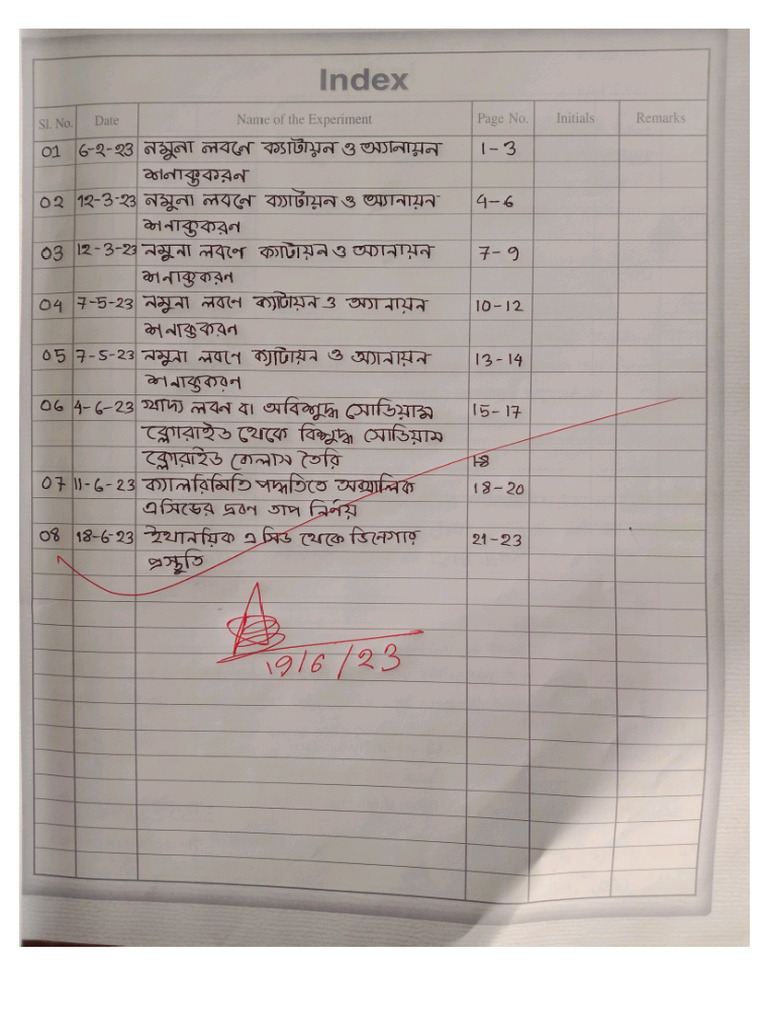 Index
Sl. No. Date Name of the Experiment Page No. Initials Remarks
01 6-2-23 নমুনা লবনে ক্যাটায়ন ও অ্যানায়ন 1-3
শনাক্তকরন
02 12-3-23 নমুনা লবনে ক্যাটায়ন ও অ্যানায়ন 4-6
শনাক্তকরন
03 12-3-23 নমুনা লবণে ক্যাটায়ন ও অ্যানায়ন 7-9
শনাক্তকরন
04 7-5-23 নমুনা লবণে ক্যাটায়ন ও অ্যানায়ন 10-12
শনাক্তকরন
05 7-5-23 নমুনা লবণে ক্যাটায়ন ও অ্যানায়ন 13-14
শনাক্তকরন
06 4-6-23 খাদ্য লবন বা অবিশুদ্ধ সোডিয়াম 15-17
ক্লোরাইড থেকে বিশুদ্ধ সোডিয়াম
ক্লোরাইড কেলাস তৈরি 18
07 11-6-23 ক্যালরিমিতি পদ্ধতিতে অক্সালিক 18-20
এসিডের দ্রবন তাপ নির্ণয়
08 18-6-23 ইথানয়িক এসিড থেকে ভিনেগার 21-23
প্রস্তুতি
19/6/23